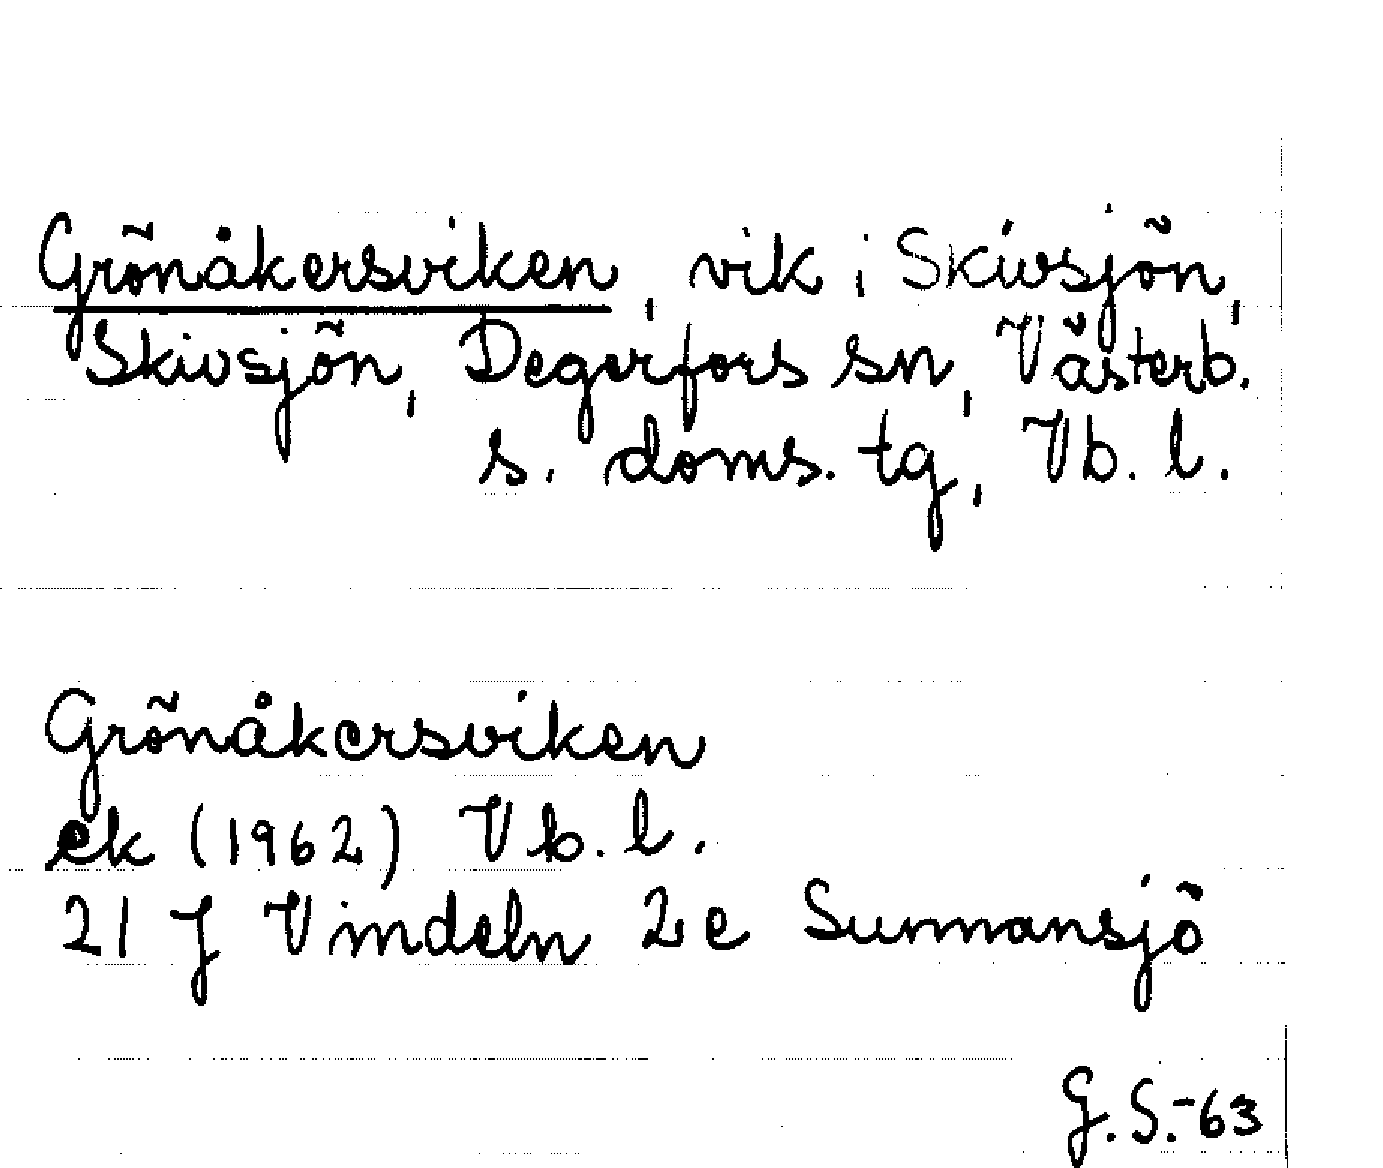 Grönåkersviken, vik i Skivsjön,
Skivsjön, Degerfors sn, Västerb.
s. doms. tg, Vb. l.
Grönåkersviken
ek (1962) Vb. l.
21 J Vindeln 2e Sunnansjö
G.S.-63